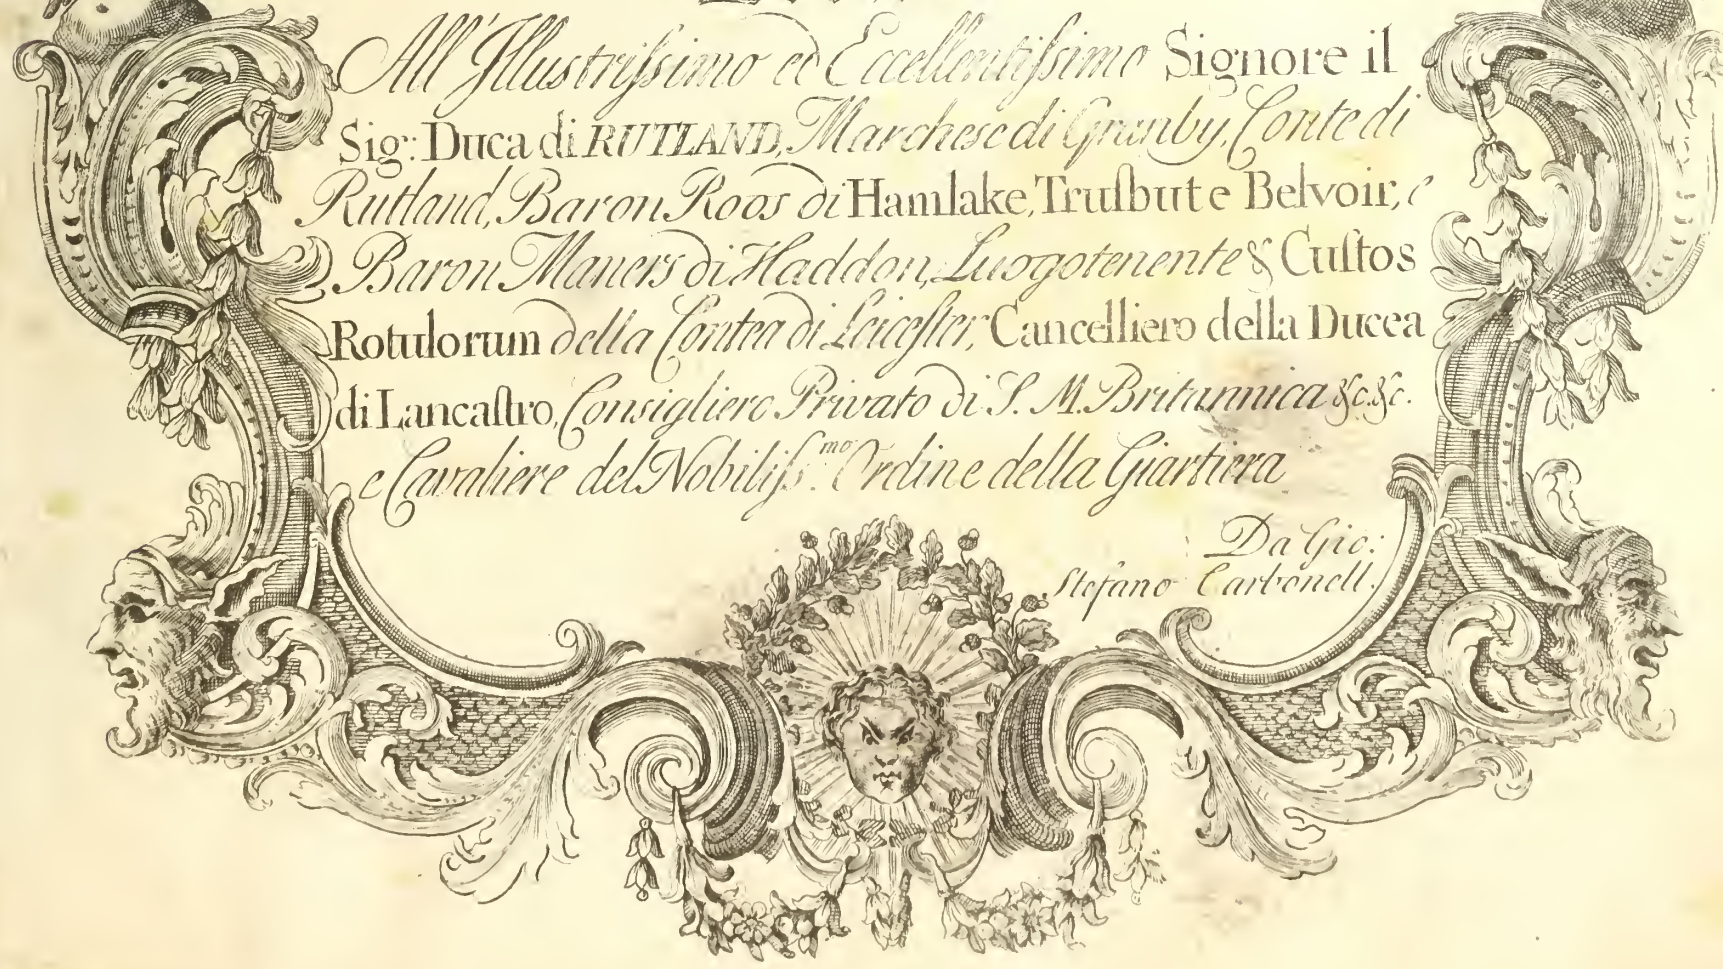 All'Illustriſsimo ed Eccellentiſsimo Signore il
Sigr: Duca di RUTLAND, Marchese di Granby, Conte di
Rutland, Baron Roos di Hamlake, Truſbut e Belvoir, e
Baron Maners di Haddon, Luogotenente & Cuſtos
Rotulorum della Contea di Leiceſter, Cancelliero della Ducea
di Lancaſtro, Consigliero Privato di S. M. Britannica &c. &c.
e Cavaliere del Nobiliſs.mo Ordine della Giartiera
Da Gio:
Stefano Carbonell.